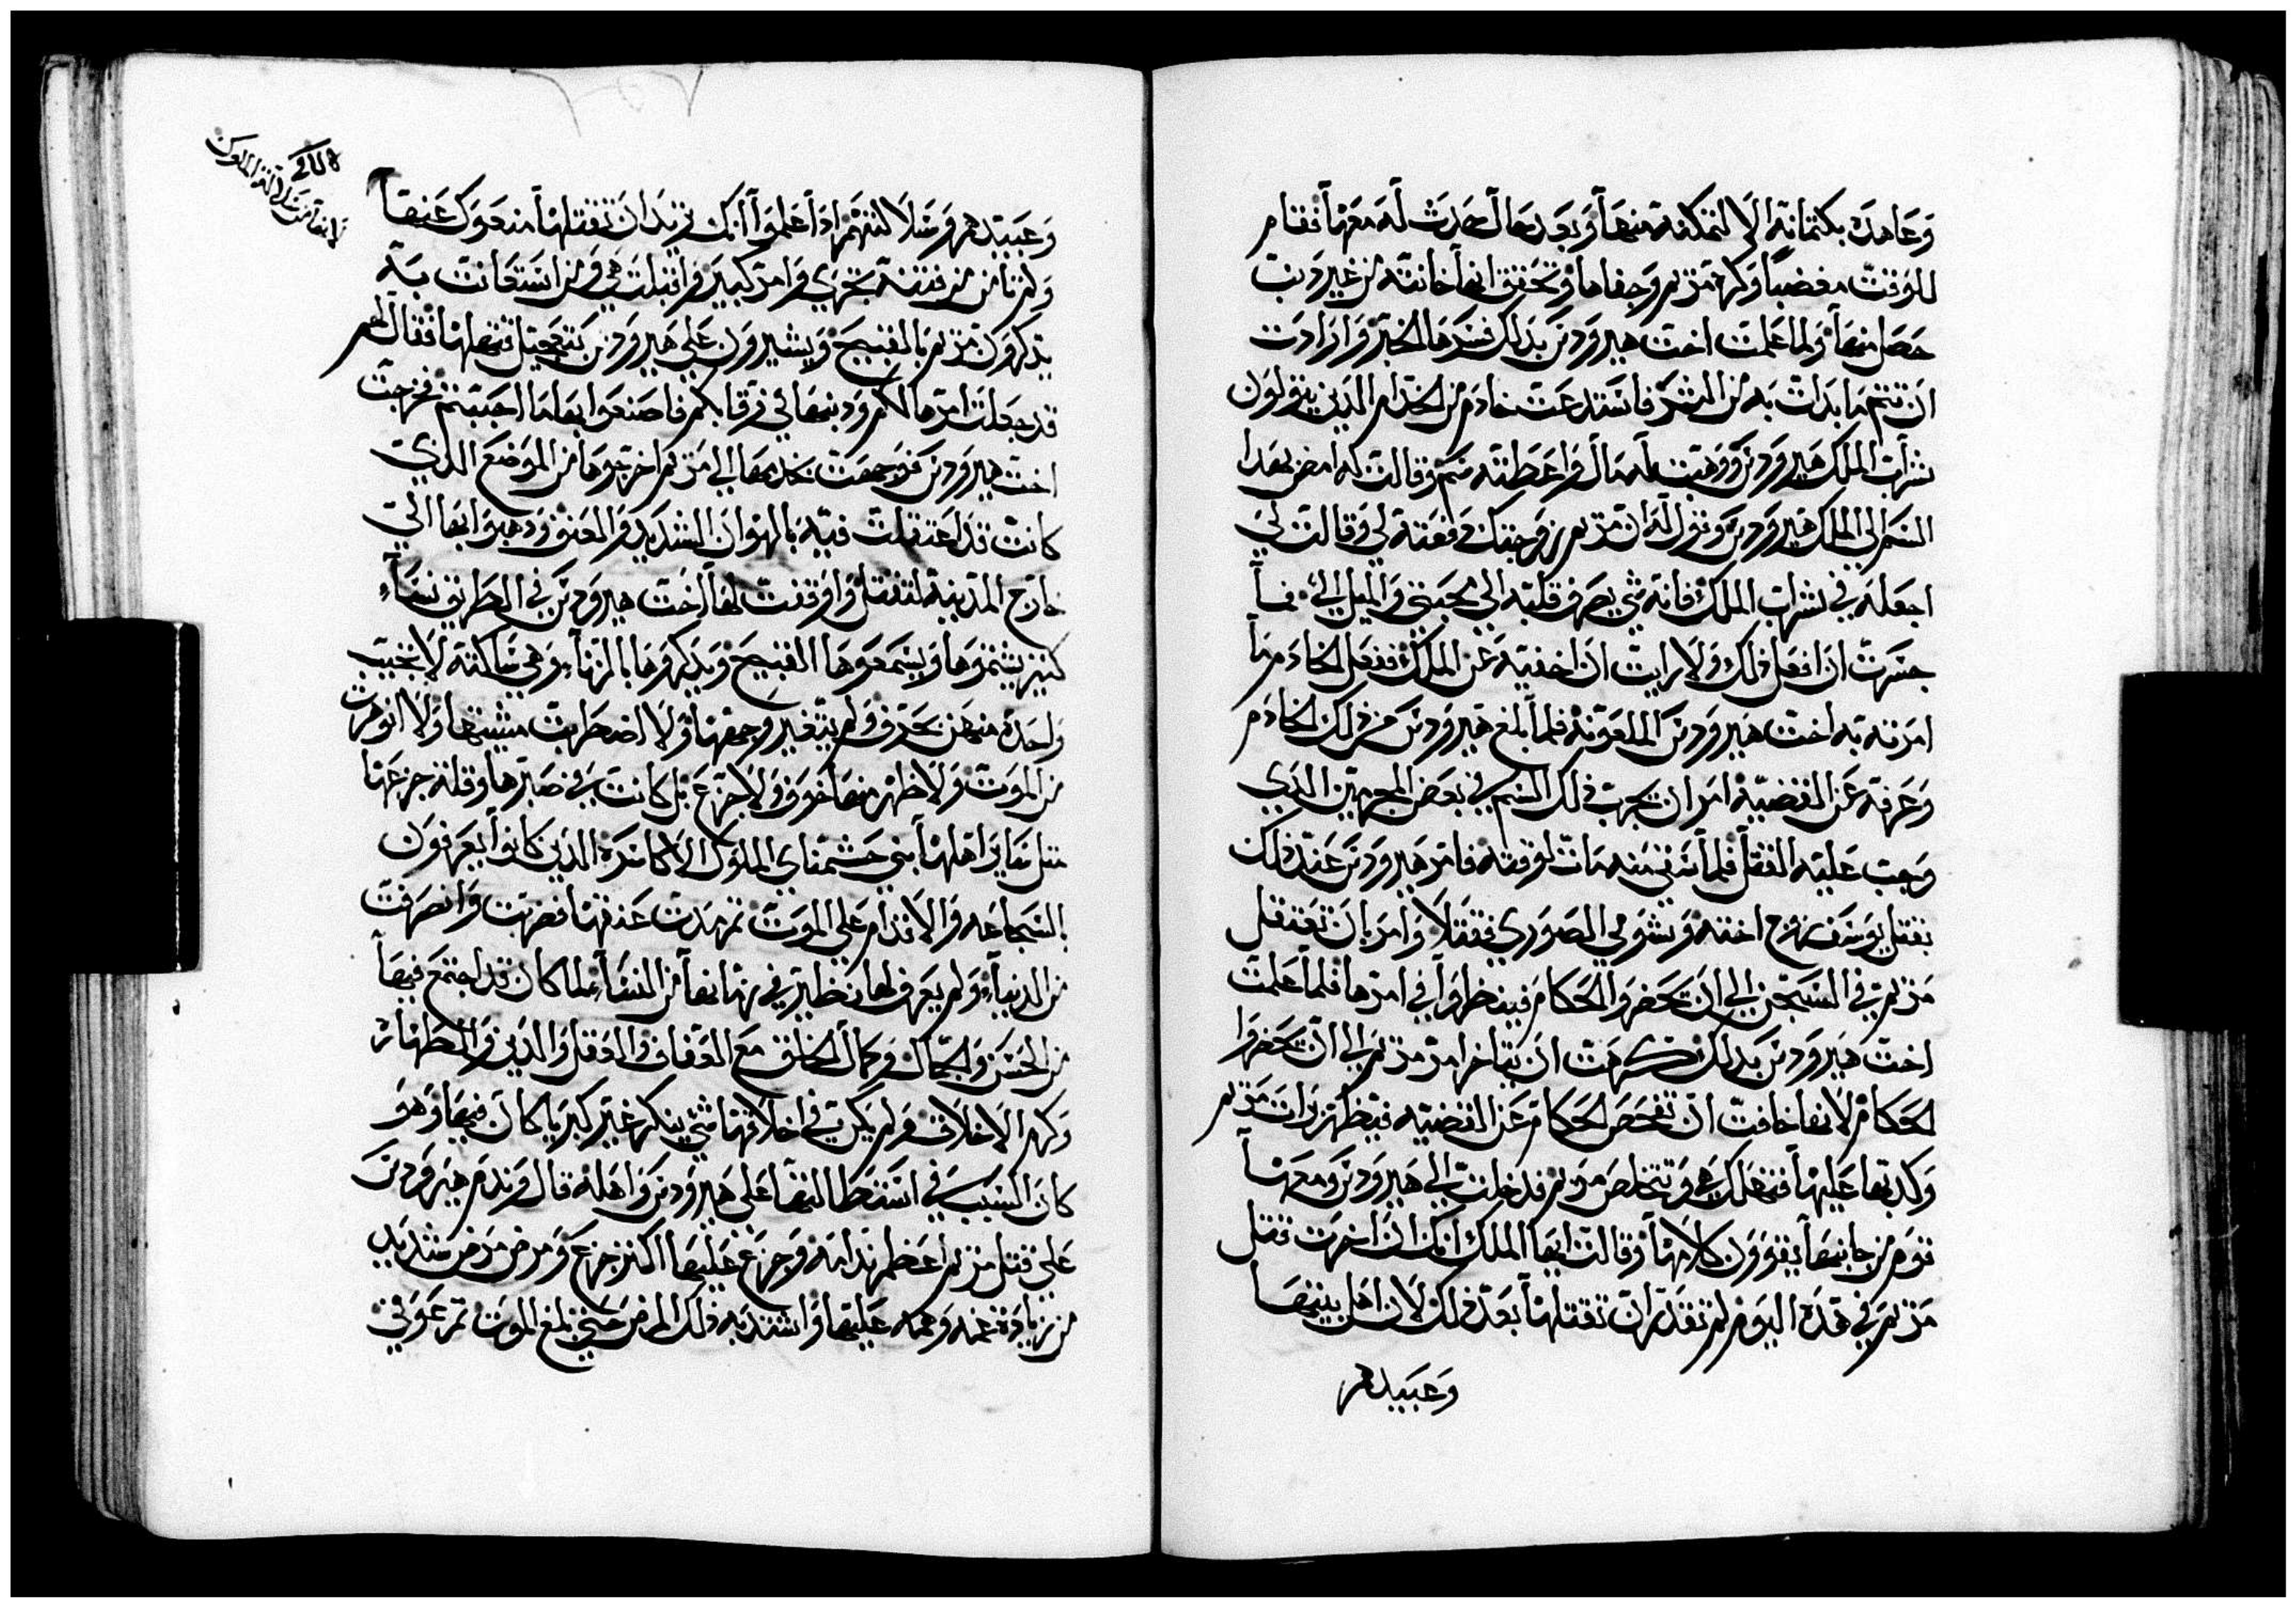 وعاهده بكتمانه الا لتمكنه منها وبعد بها ال حدث له معها فقام
للوقت مغضبًا وكره مريم وجفاها وتحقق انها خانته من غير ذنب
حصل منها ولما علمت اخت هيرودس بذلك فسرها الخبر وارادت
ان تتم ما بدات به من الشر فاستدعت خادم من الخدام الذين يتولون
شراب الملك هيرودس ووهبت له مال واعطته سم وقالت له امض بهدا
السم الي الملك هيرودس وتقول له ان مريم زوجتك دفعته لي وقالت لي
اجعله في شراب الملك فانه شي يصرف قلبه الي محبتي والميل الي فما
جسرت ان افعل ذلك ولا رايت ان اخفيه عن الملك ففعل الخادم ما
امرته به اخت هيرودس الملعونه فلما بلغ هيرودس من ذلك الخادم
وعرفه عن القضيه امر ان يجرب ذلك السم في بعض المجرمين الذي
وجب عليه القتل فلما سقي منه مات لوقته فامر هيرودس عند ذلك
بقتل يوسف زوج اخته وشومي الصوري فقتلا وامر بان تعتقل
مريم في السجن الي ان تحضر الحكام فينظروا في امرها فلما علمت
اخت هيرودس بذلك كرهت ان يتاخر امر مريم الي ان تحضروا
الحكام لانها خافت ان تفحص الحكام عن القضيه فيظهر برات مريم
وكدبها عليها فتهلك هي وتتخلص مريم فدخلت الي هيرودس ومعها
قوم من جانبها يقوون كلامها وقالت ايها الملك انك ان اخرت قتل
مريم في هده اليوم لم تقدر ان تقتلها بعد ذلك لان اهل بيتها
وعبيدهم
وعبيدهم وسلالتهم ادا علموا انك تريد ان تقتلها منعوك عنها
ولم تامن من فتنة تجري وامر كبير واقبلت هي ومن استعانت به
يدكرون مريم بالقبيح ويشيرون علي هيرودس بتعجيل قتلها فقال لهم
قد جعلت امرها لكم ودمها في رقابكم فاصنعوا بها ما احببتم فخرجت
اخت هيرودس فوجهت بخدمها الي مريم اخرجوها من الموضع الذي
كانت قد اعتقلت فيه بالهوان الشديد والعنف ودهبوا بها الي
خارج المدينه لتقتل واوقفت لها اخت هيرودس في الطريق نساء
كتير يشتموها ويسمعوها القبيح ويدكروها بالزنا وهي ساكته لا تجيب
واحدة منهن بحرف ولم يتغير وجهها ولا اضطربت مشيتها ولا انوهرت
من الموت ولا ظهر منها خوف ولا جزع بل كانت في صبرها وقلة جزعها
مثل ساير اهلها بني حشمناي الملوك الاكاسره الذين كانوا يعرفون
بالشجاعه والاقدام علي الموت ثم مدت عنقها فضربت وانصرفت
من الدنيا ولم يعرف لها نظير في زمانها من النساء لما كان قد اجتمع فيها
من الحسن والجمال وكمال الخلق مع العفاف والعقل والدين والطهاره
وكرم الاخلاق ولم يكن في اخلاقها شي ينكر غير كبريا كان فيها وهو
كان السبب في استطالتها علي هيرودس واهله قال وندم هيرودس
علي قتل مريم اعظم ندامه وجزع عليها اكتر جزع ومرض مرض شديد
من زيادة غمه وهمه عليها واشتد به ذلك المرض حتي بلغ الموت ثم عوفي